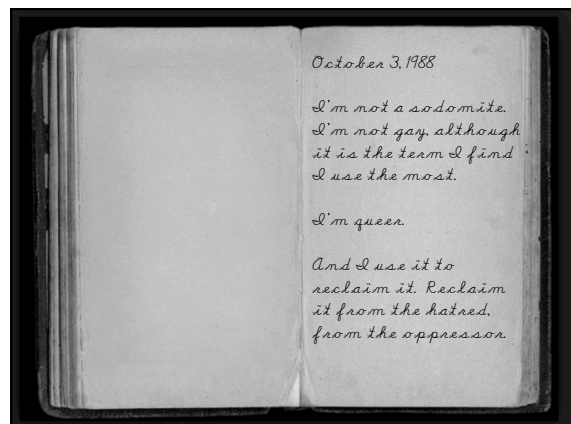 October 3, 1988
I'm not a sodomite.
I'm not gay, although
it is the term I find
I use the most.
I'm queer.
And I use it to
reclaim it. Reclaim
it from the hatred,
from the oppressor.